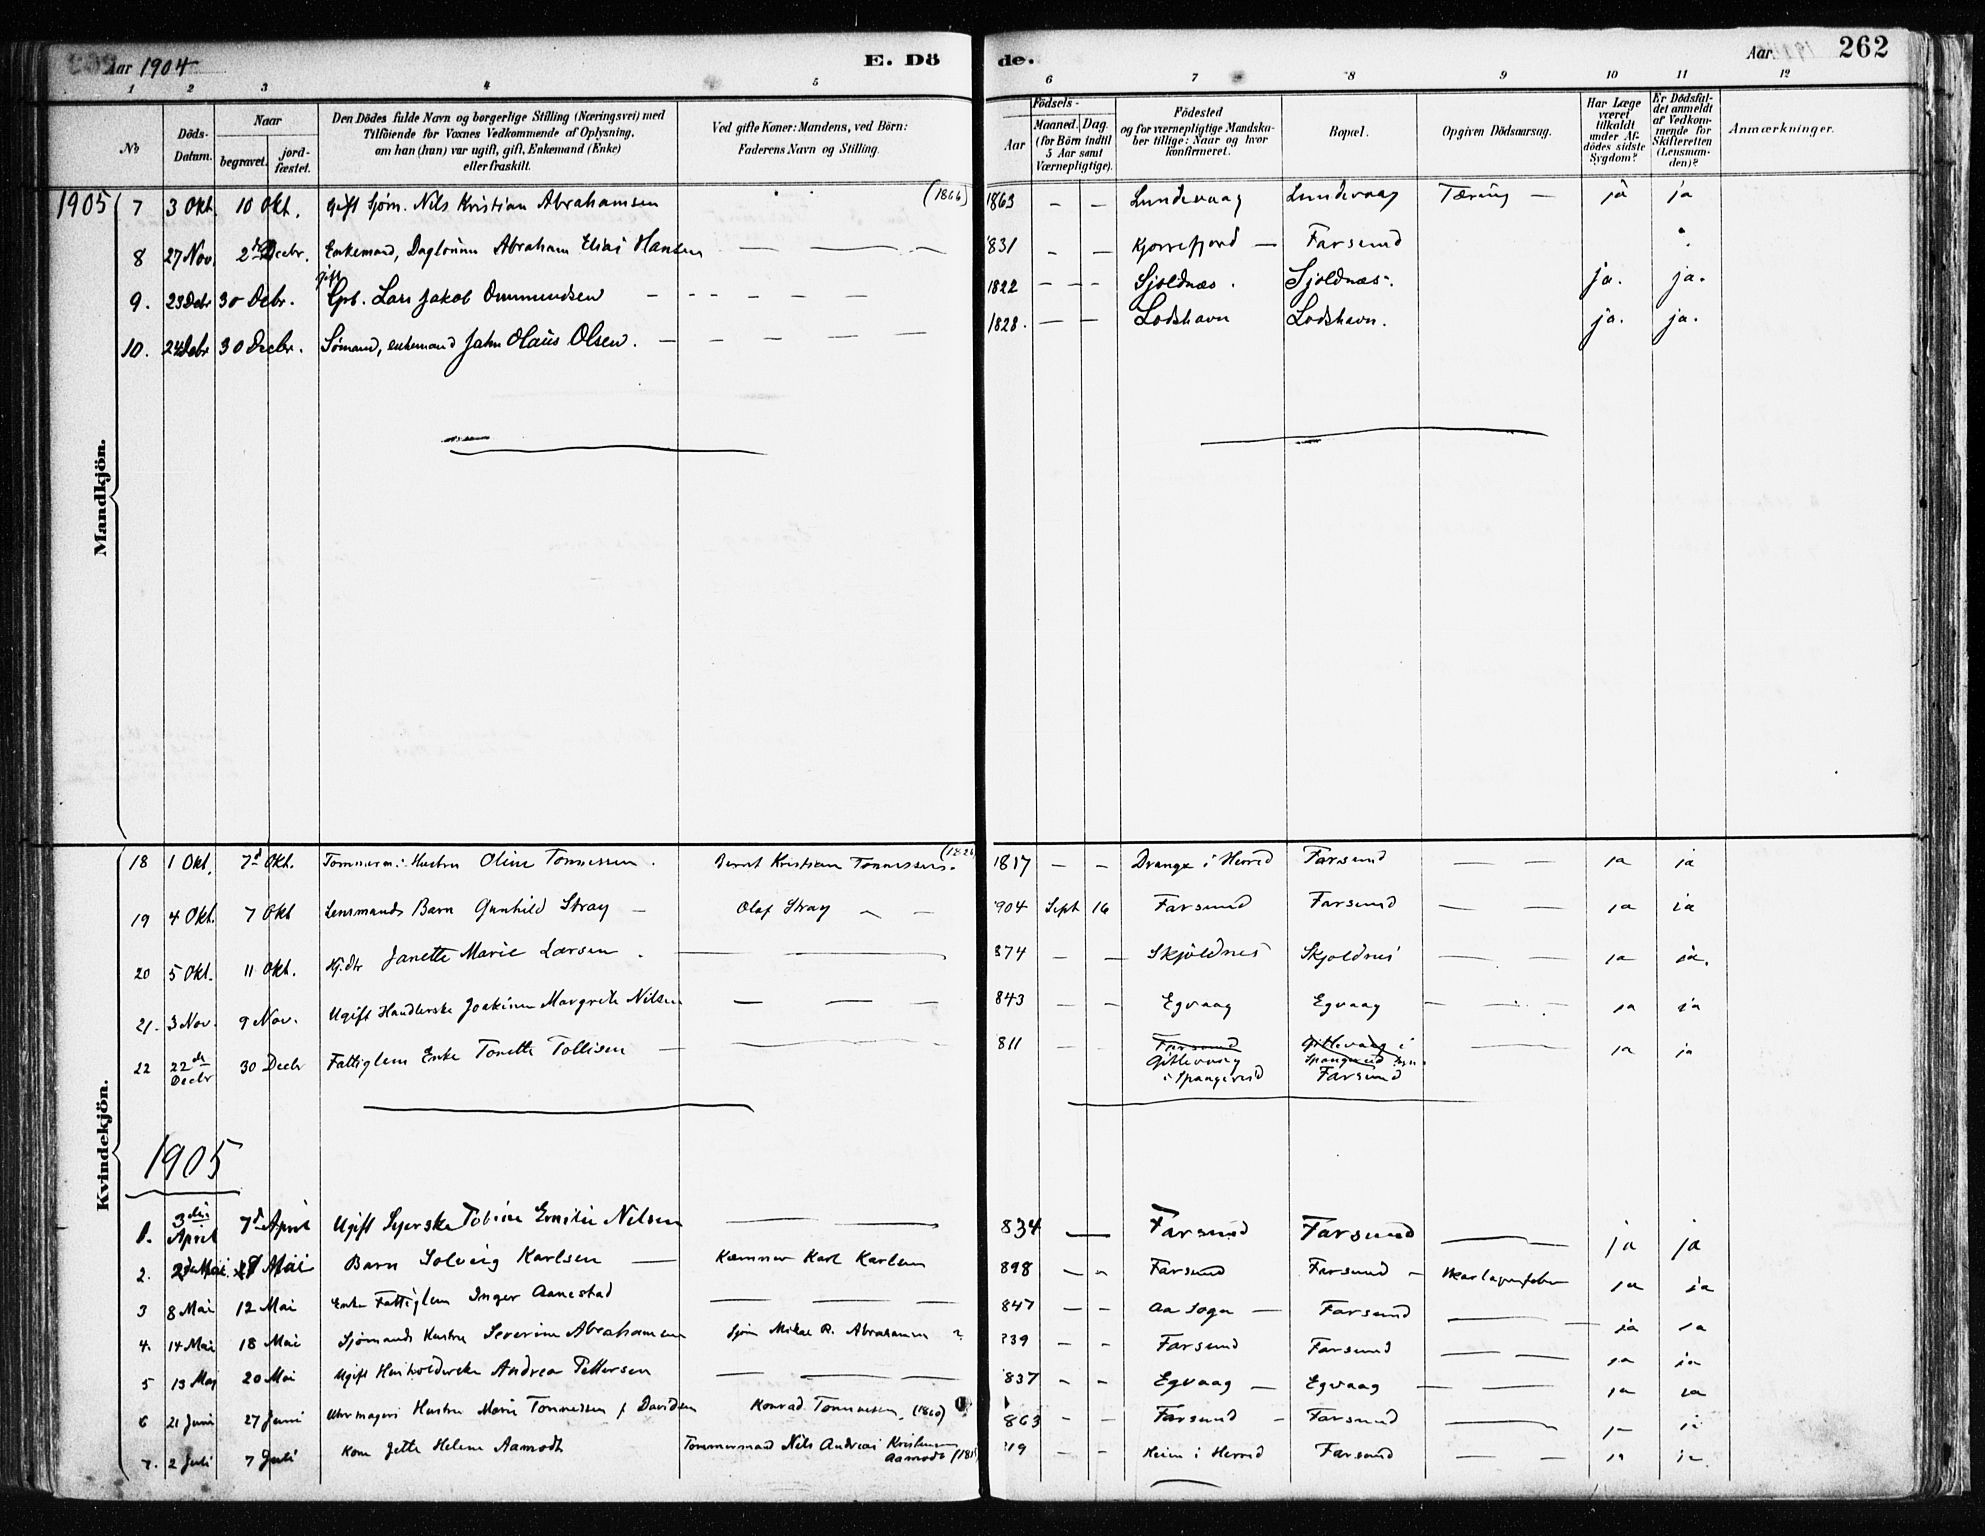 Aar 1904 E. Döde. Aar 262
1 2 3 4 5 6 7 8 9 10 11 12
No
Döds-Datum.
Naar
begravet.
jord-fæstet.
Den Dödes fulde Navn og borgerlige Stilling (Næringsvei) med
Tilföiende for Voxnes Vedkommende af Oplysning,
om han (hun) var ugift, gift, Enkemand (Enke)
eller fraskilt.
Ved gifte Koner: Mandens, ved Börn:
Faderens Navn og Stilling.
Födsels-
Aar
Maaned. Dag
(for Börn indtil
5 Aar samt
Værnepligtige).
Födested
og for værnepligtige Mandska-
ber tillige: Naar og hvor
konfirmeret.
Bopæl.
Opgiven Dödsaarsag.
Har Læge
været
tilkaldt
under Af-
dödes sidste
Sygdom?
Er Dödsfal-
det anmeldt
af Vedkom-
mende for
Skifteretten
(Lensman-
den)?
Anmærkninger.
Mandkjön.
1905 7 3 Okt. 10 Okt. Gift Sjøm. Nils Kristian Abrahamsen (1866) 1863 — — Lundevaag Lundevaag Tæring — ja ja
8 27 Nov. 2 Decbr. Enkemand, Abraham Elias Hansen — — — 831 — — Kjørrefjord — Farsund
9. 23 Debr 30 Debr. gift Grb. Lars Jakob Ommundsen — — — 1822 — — Sjoldnæs. Sjoldnæs. ja. ja.
10. 24 Debr 30 Decbr. Sømand, enkemand John Olaus Olsen. — — — 1828. — — Lodshavn Lodshavn. ja. ja.
Kvindekjön.
18 1 Okt. 7d Okt. Tømmerm. Hustru Oline Tønnessen. Bernt Kristian Tønnessen. 1817 — — Drange i Herred Farsund — — ja ja
19 4 Okt. 7 Okt Lensmands Barn Gunhild Stray — Olaf Stray — — 904 Sept 16 Farsund Farsund — — ja ja
20 5 Okt. 11 Okt. Janette Marie Larsen. — — — 874 — — Skjoldnes Skjoldnes — — ja ja.
21. 3 Nov. 9 Nov. Ugift Handlerske Joakime Margrete Nilsen — — — 843 — — Egvaag Egvaag — — ja ja
22 22de Decbr 30 Decbr Fattiglem Enke Tonette Tollisen — — — 811 — — Farsund Gitlevaag i Spangereid Gitlevaag i Spangereid Farsund — — ja ja
1905
1. 3die April 7d April Ugift Syerske Tobine Emilie Nilsen — — 834 — Farsund Farsund — — ja ja
2. Mai Mai Barn Solveig Karlsen — Kæmner Karl Karlsen 898 — — Farsund Farsund — Skarlagensfeber ja ja
3 8 Mai 12 Mai Enke Fattiglem Inger Aanestad — — — 847 — — Aa sogn — Farsund — — ja ja
4. 14 Mai 18 Mai Sjømands Hustru Severine Abrahamsen Sjøm Mikal R. Abrahamsen 839 — — Farsund Farsund — — ja ja
5 13 Maj 20 Mai Ugift Husholderske Andrea Pettersen — — — 837 — — Egvaag — Egvaag — — — ja ja
6 21 Juni 27 Juni Uhrmagers Hustru Marie Tønnessen f. Davidsen Konrad Tønnessen. (1860) 863 — — Farsund — Farsund — — ja ja
7. 2 Juli 7 Juli Kone Jette Helene Aamodt Tømmermand Nils Andreas Kristensen Aamodt 819 — — Heim i Herred Farsund — — ja ja